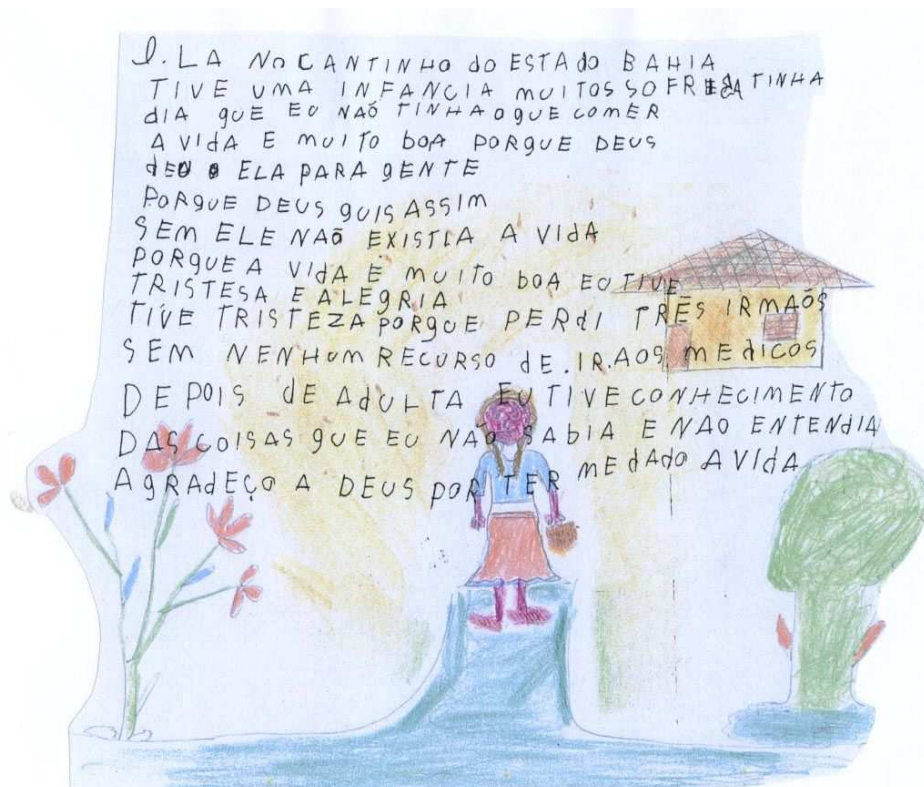 1. LA NO CANTINHO do ESTAdO BAHIA
TIVE UMA INFANCIA MUITOS SOFRIdA TINHA
dIA QUE EU NAÕ TINHA O QUE COMER
A VIdA E MUITO bOA PORQUE DEUS
dEU ELA PARA GENTE
PORQUE DEUS QUIS ASSIM
SEM ELE NAÕ EXISTIA A VIdA
PORQUE A VIdA E MUITO bOA EU TIVE
TRISTESA E ALEGRIA
TIVE TRISTEZA PORQUE PERdI TRÊS IRMAÕS
SEM NENHUM RECURSO dE.IR.AOS MEdICOS
DEPOIS dE AdULTA EU TIVE CONHECIMENTO
DAS COISAS QUE EU NAÕ SAbIA E NAO ENTENdIA
AGRAdEÇO A DEUS POR TER ME dAdO A VIdA